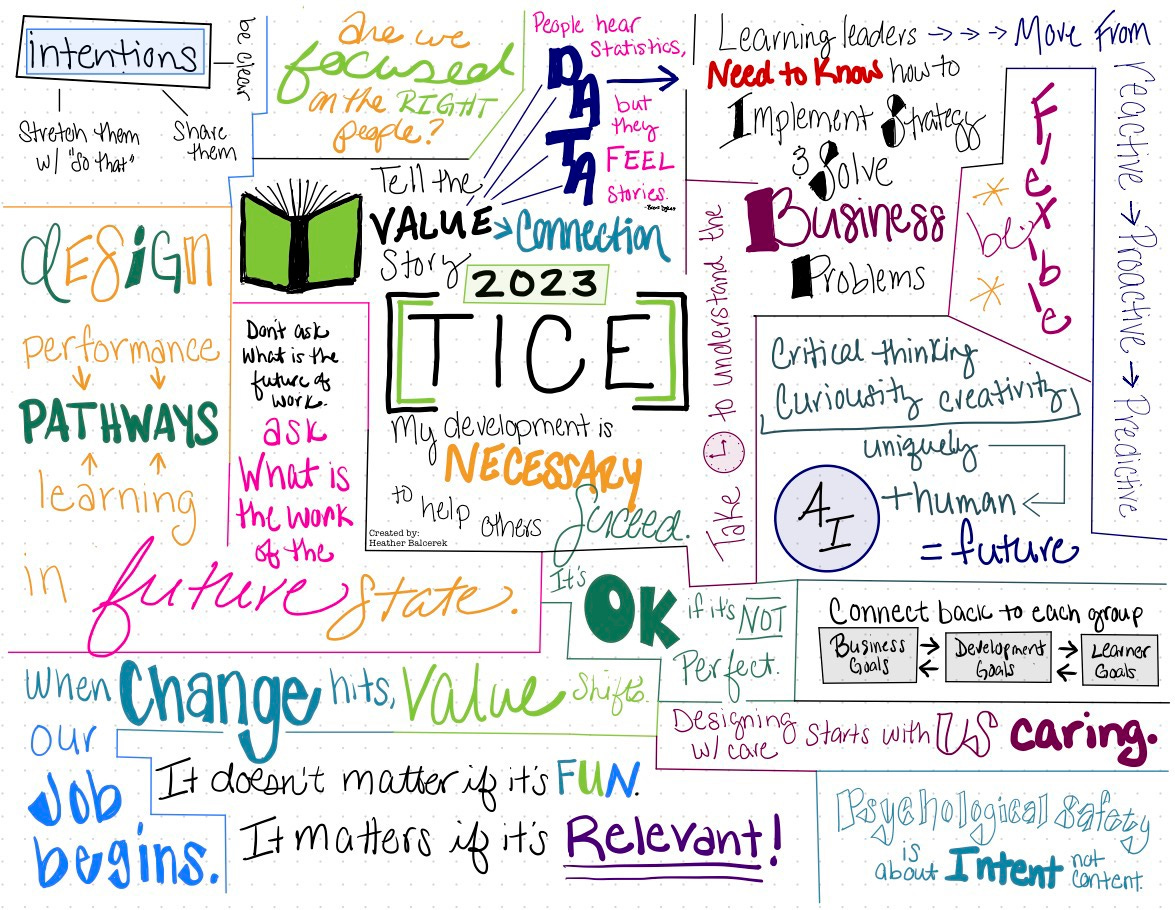 intentions
be clear
Stretch them
w/ "So that"
Share
them
are we
focused
on the RIGHT
people?
People hear
Statistics,
DATA
but
they
FEEL
Stories.
Tell the
VALUE
Story
Connection
Learning leaders
Need to Know how to
Implement Strategy
& Solve
Business
Problems
Move From
reactive → Proactive → Predictive
* be *
Flexible
design
performance
PATHWAYS
learning
in
Don't ask
What is the
future of
work.
ask
What is
the work
of the
future state.
2023
TICE
My development is
NECESSARY
to help others
Succeed.
Created by:
Heather Balcerek
Take to understand the
Critical thinking
Curiousity creativity
uniquely
AI + human
= future
It's
OK if it's NOT
Perfect.
Connect back to each group
Business
Goals
Development
Goals
Learner
Goals
When Change hits, Value Shifts.
our
Job
begins.
Designing
w/ care
Starts with US caring.
It doesn't matter if it's FUN.
It matters if it's Relevant!
Psychological Safety
is
about Intent not
content.